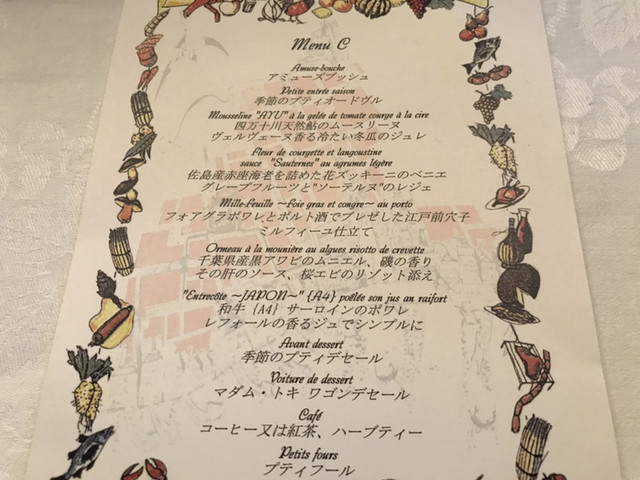 Menu C
Amuse-bouche
アミューズブッシュ
Petite entrée saison
季節のプティオードヴル
Mousseline "AYU" à la gelée de tomate courge à la cire
四万十川天然鮎のムースリーヌ
ヴェルヴェーヌ香る冷たい冬瓜のジュレ
Fleur de courgette et langoustine
sauce "Sauternes" au agrumes légère
佐島産赤座海老を詰めた花ズッキーニのベニエ
グレープフルーツと"ソーテルヌ"のレジェ
Mille-feuille ～Foie gras et congre～ au porto
フォアグラポワレとポルト酒でブレゼした江戸前穴子
ミルフィーユ仕立て
Ormeau à la mounière au algues risotto de crevette
千葉県産黒アワビのムニエル、磯の香り
その肝のソース、桜エビのリゾット添え
"Entrecôte ～JAPON～" {A4} poêlée son jus an raifort
和牛 {A4} サーロインのポワレ
レフォールの香るジュでシンプルに
Avant dessert
季節のプティデセール
Voiture de dessert
マダム・トキ ワゴンデセール
Café
コーヒー又は紅茶、ハーブティー
Petits fours
プティフール